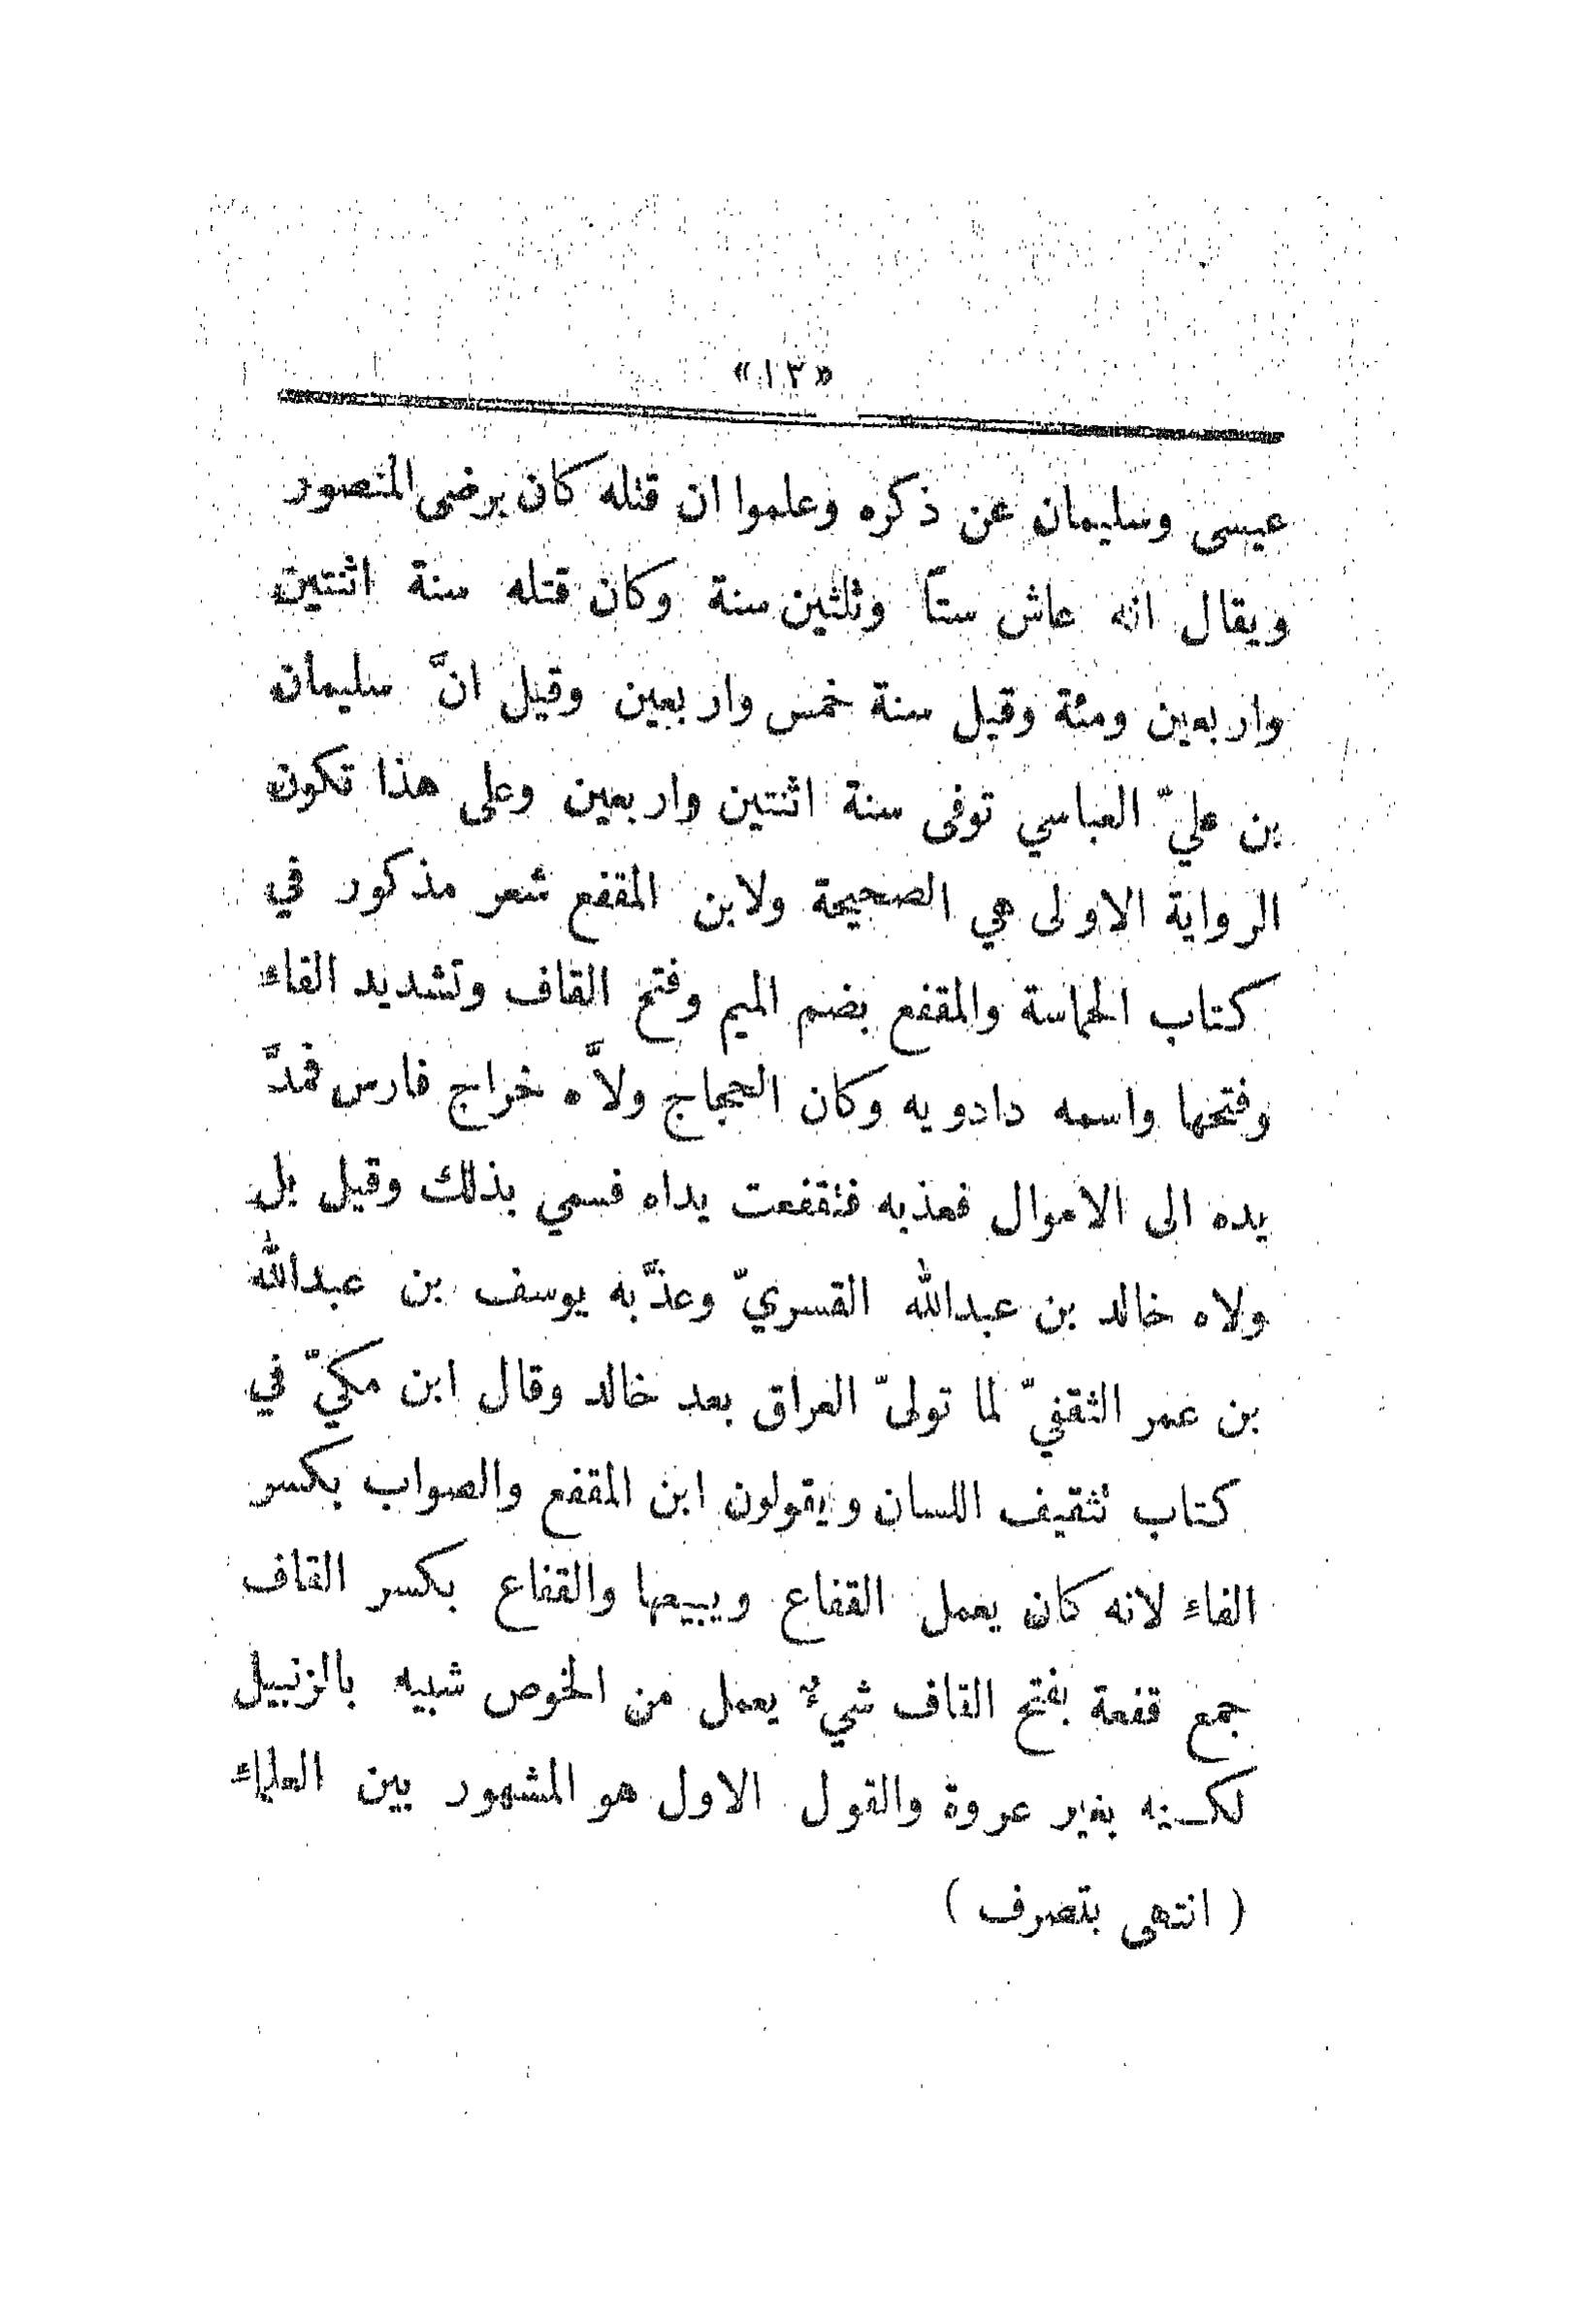 «١٣»
عيسى وسليمان عن ذكره وعلموا ان قتله كان برضى المنصور
ويقال انه عاش ستًّا وثلثين سنة وكان قتله سنة اثنتين
واربعين ومئة وقيل سنة خمس واربعين وقيل انَّ سليمان
بن عليّ العباسي توفى سنة اثنتين واربعين وعلى هذا تكون
الرواية الاولى هي الصحيحة ولابن المقفع شعر مذكور في
كتاب الحماسة والمقفع بضم الميم وفتح القاف وتشديد الفاء
وفتحها واسمه دادويه وكان الحجاج ولاَّه خراج فارس فمدَّ
يده الى الاموال فعذبه فتقفعت يداه فسمي بذلك وقيل بل
ولاه خالد بن عبدالله القسريّ وعذَّبه يوسف بن عبدالله
بن عمر الثقفيّ لما تولىّ العراق بعد خالد وقال ابن مكيّ في
كتاب تثقيف اللسان ويقولون ابن المقفع والصواب بكسر
الفاء لانه كان يعمل القفاع ويبيعها والقفاع بكسر القاف
جمع قفعة بفتح القاف شيءٌ يعمل من الخوص شبيه بالزنبيل
لكنه بغير عروة والقول الاول هو المشهور بين العلماء
( انتهى بتصرف )